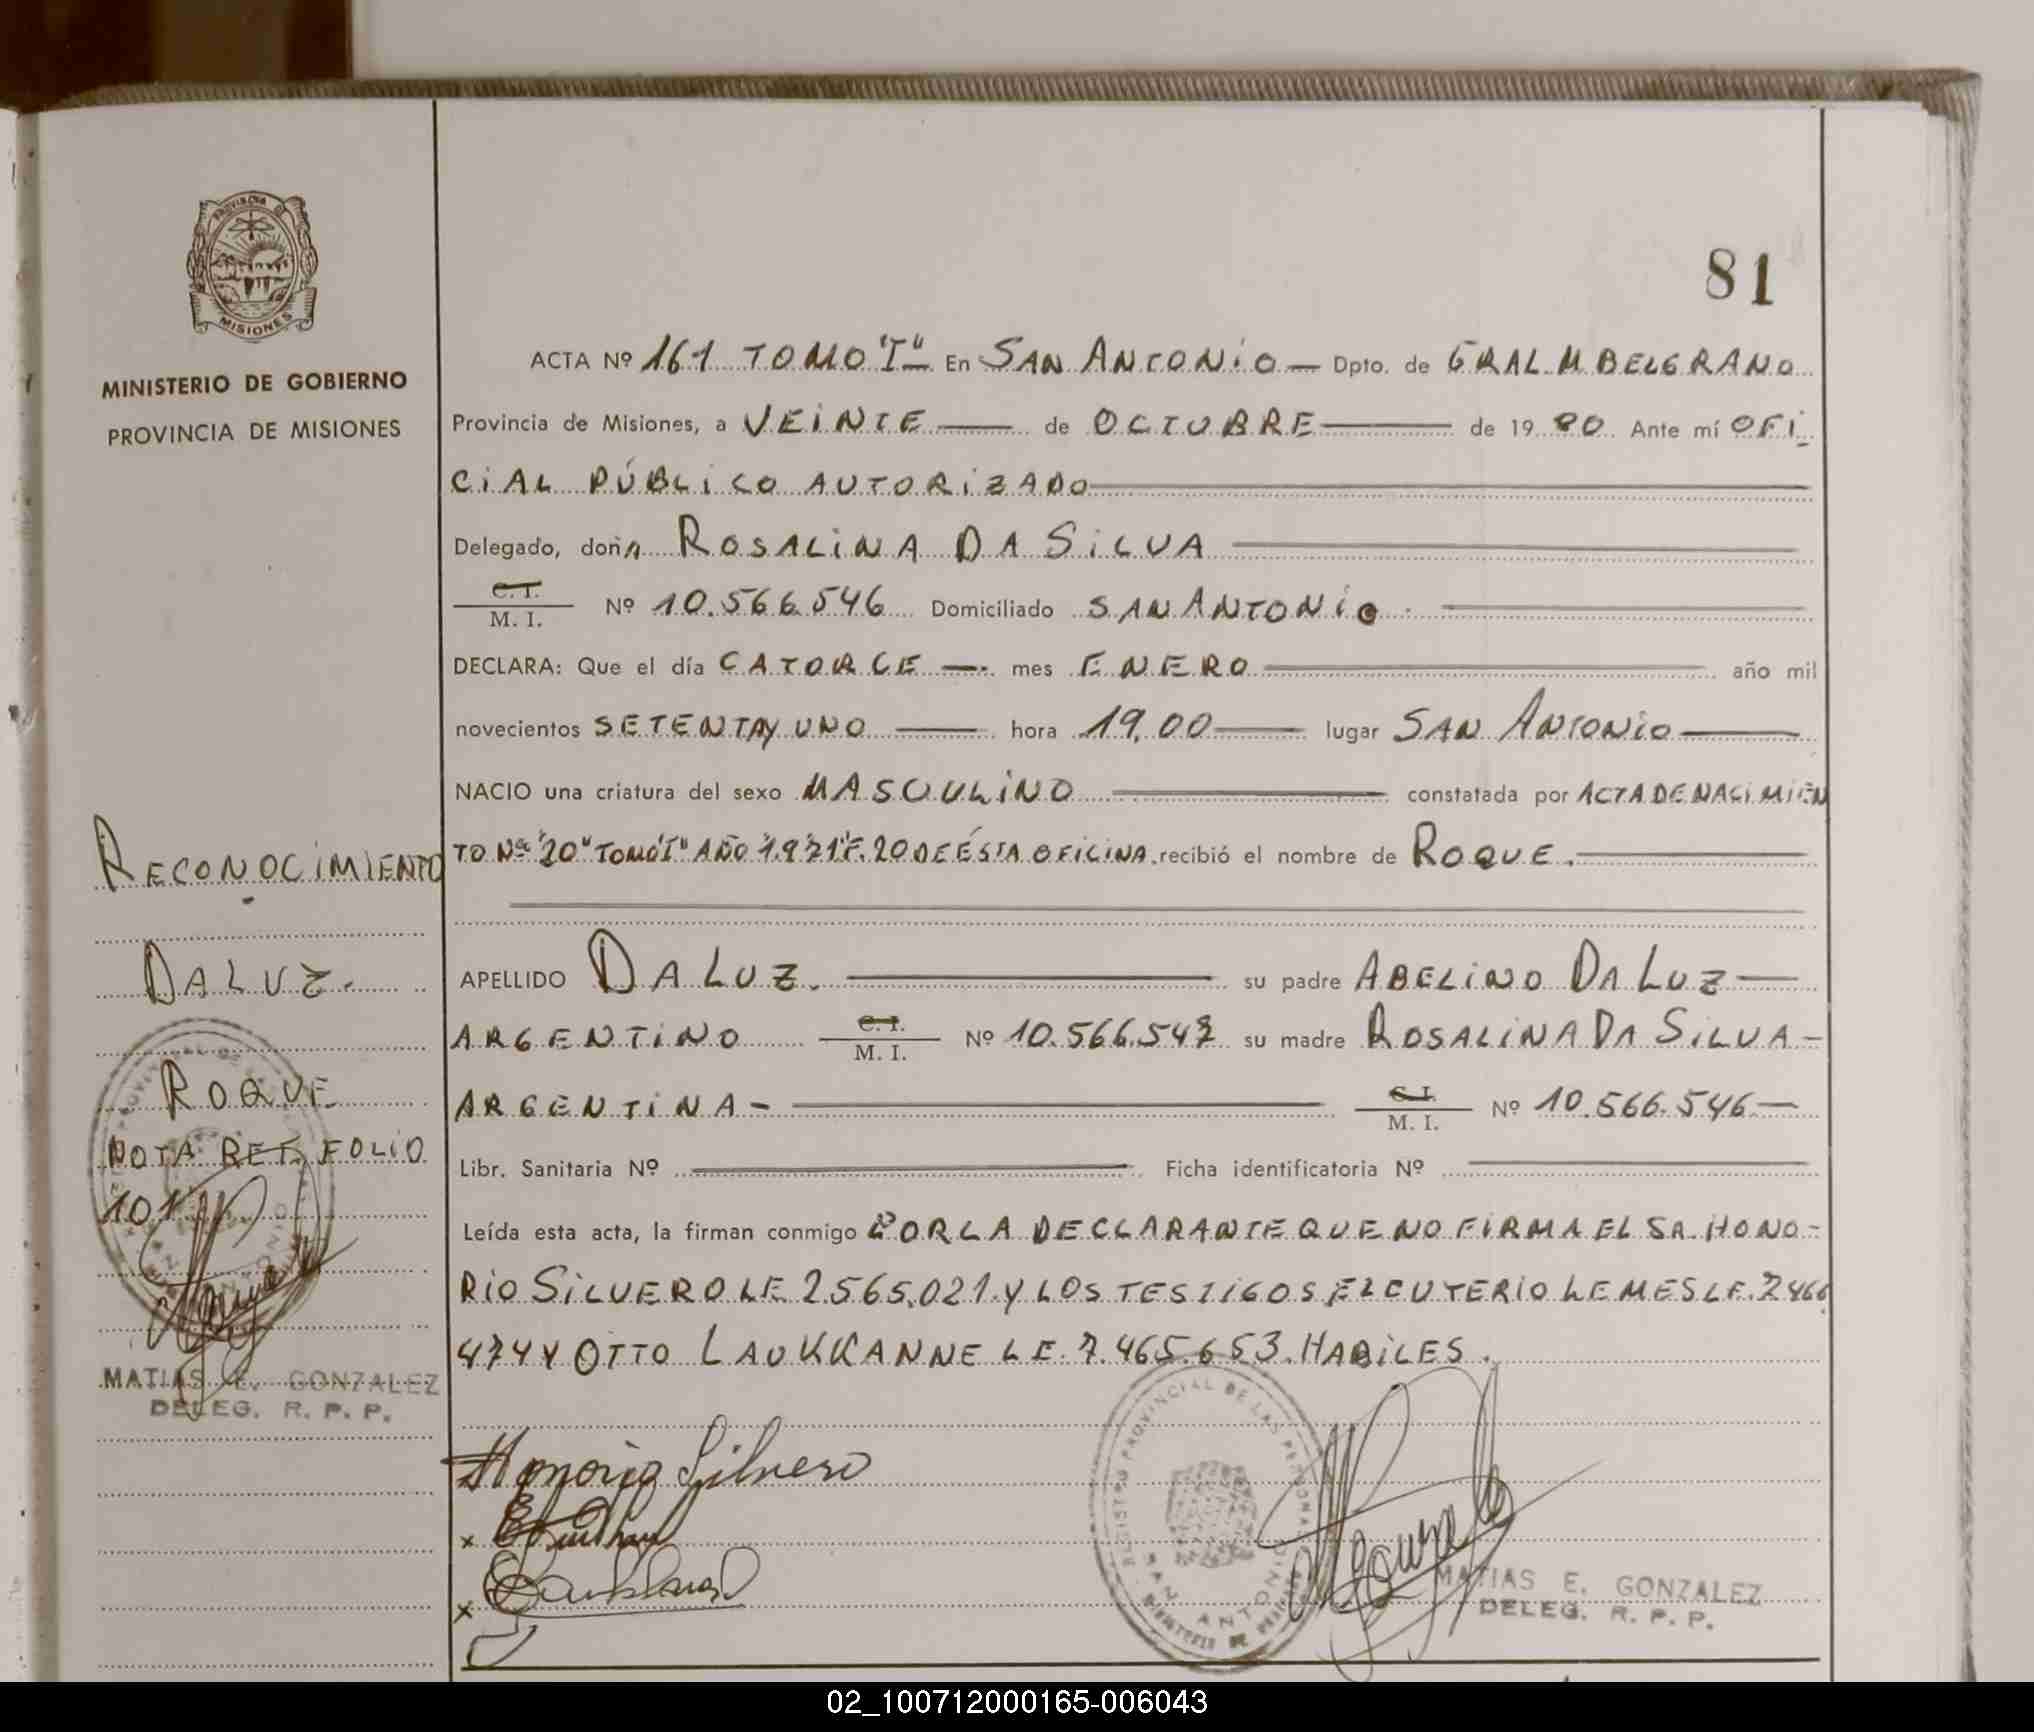 81
PROVINCIA DE
MISIONES
MINISTERIO DE GOBIERNO
PROVINCIA DE MISIONES
ACTA Nº 161 TOMO "I" En SAN ANTONIO Dpto. de GRAL M BELGRANO
Provincia de Misiones, a VEINTE de OCTUBRE de 1980 Ante mí OFI-
CIAL PÚBLICO AUTORIZADO
Delegado, doña ROSALINA DA SILVA
C. I.
M. I. Nº 10.566.546 Domiciliado SAN ANTONIO
DECLARA: Que el día CATORCE mes ENERO año mil
novecientos SETENTAY UNO hora 19,00 lugar SAN ANTONIO
NACIO una criatura del sexo MASCULINO constatada por ACTA DE NACIMIEN
TO Nº "20" TOMO "I" AÑO "1.971" F. 20 DE ÉSTA OFICINA. recibió el nombre de ROQUE.
APELLIDO DA LUZ. su padre ABELINO DA LUZ
ARGENTINO C. I.
M. I. Nº 10.566.547 su madre ROSALINA DA SILVA-
ARGENTINA- C. I.
M. I. Nº 10.566.546
Libr. Sanitaria Nº Ficha identificatoria Nº
Leída esta acta, la firman conmigo PORLA DECLARANTE QUE NO FIRMA EL SR. HONO-
RIO SILVERO LE 2.565.021. Y LOS TESTIGOS ELEUTERIO LEMES LE. 7466
474 Y OTTO LAUKKANNE LE. 7.465.653. HABILES.
Honorio Silvero
REGISTRO PROVINCIAL DE LAS PERSONAS
SAN ANTONIO
MATIAS E. GONZALEZ
DELEG. R. P. P.
RECONOCIMIENTO
DA LUZ.
ROQUE
NOTA RET. FOLIO
101
MATIAS E. GONZALEZ
DELEG. R. P. P.
02_100712000165-006043